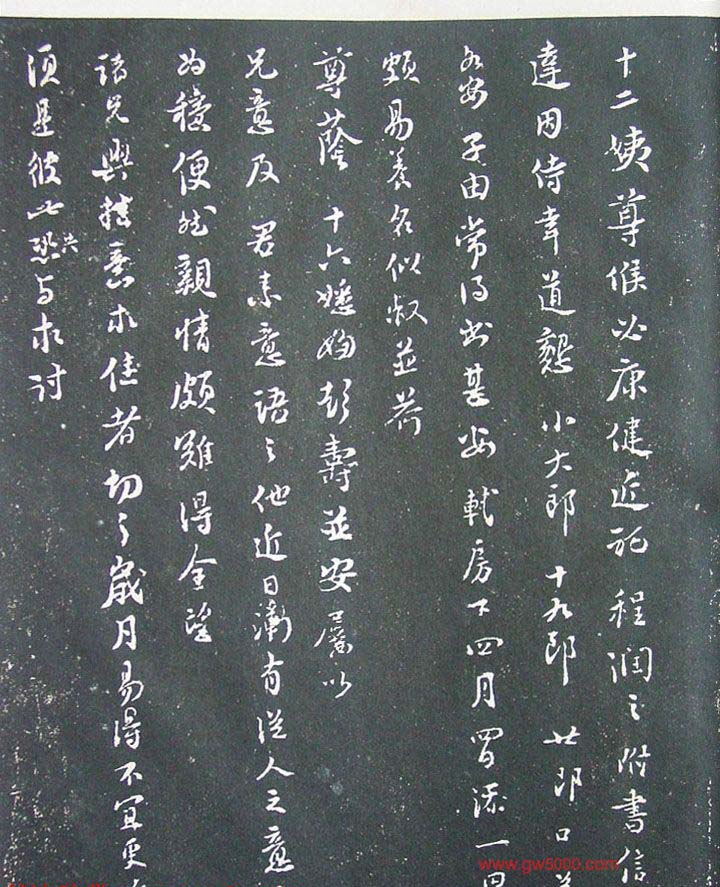 十二姨尊候必康健近託程潤之附書信
達因侍韋道懇小大郎十九郎廿郎口
各安子由常得書甚安軾房下四月間添一
頗易養名似叔並荷
尊蔭十六嫂婦彭壽並安屬以
兄意及君素意語之他近日漸有從人之意
為穩便然親情頗難得全望
諸兄與掛意求佳者切切歲月易得不宜更
須是彼此共與求討
www.gw5000.com